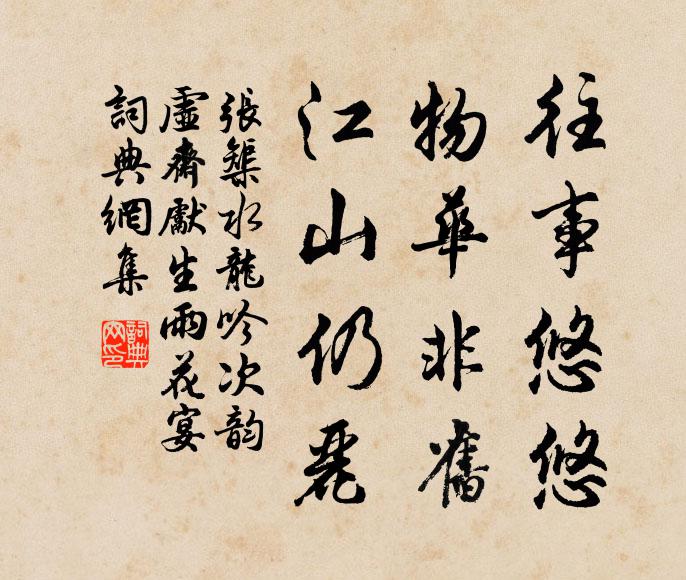 往事悠悠
物華非舊
江山仍麗
張榘水龍吟次韵
虛齋獻生雨花宴
詞典網集
詞典
网印